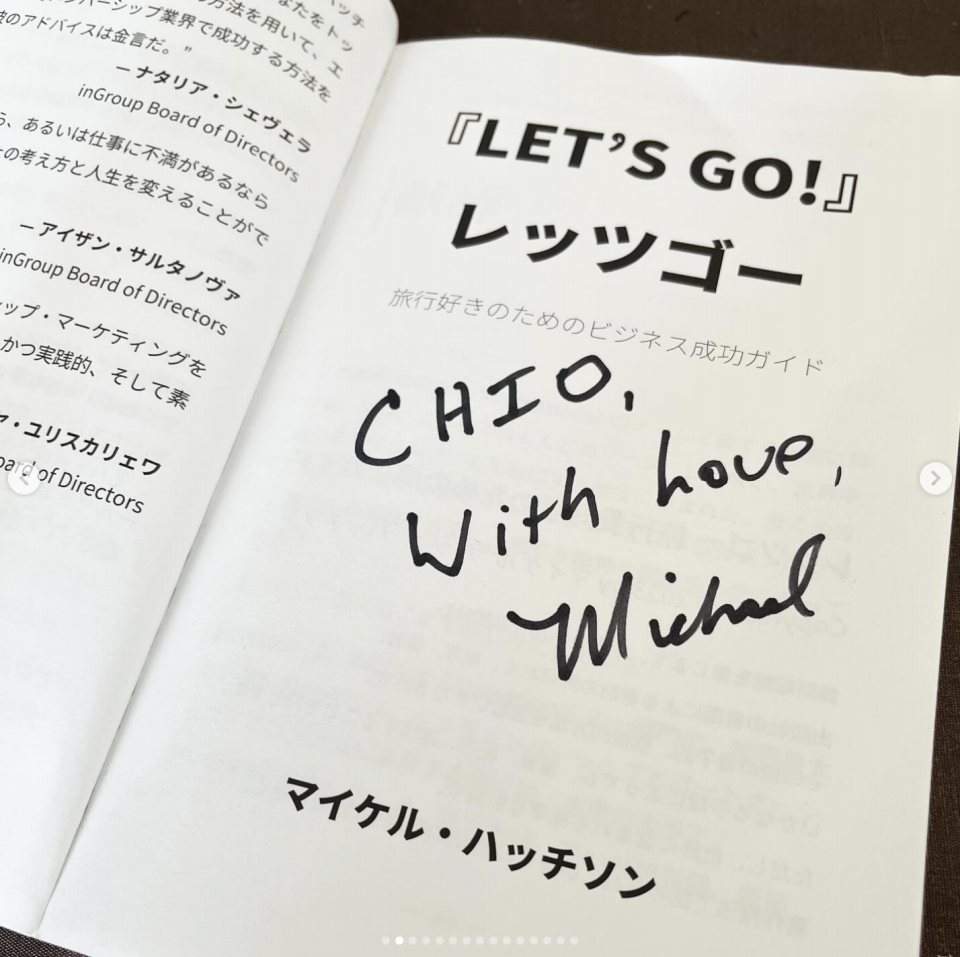 ハッチ
なたをトッ
バーシップ業界で成功する方法を
方法を用いて、エ
彼のアドバイスは金言だ。”
– ナタリア・シェヴェラ
inGroup Board of Directors
ら、あるいは仕事に不満があるなら
の考え方と人生を変えることがで
– アイザン・サルタノヴァ
inGroup Board of Directors
ップ・マーケティングを
かつ実践的、そして素
ヤ・ユリスカリェワ
Board of Directors
『LET’S GO!』
レッツゴー
旅行好きのためのビジネス成功ガイド
CHIO,
With Love,
Michael
マイケル・ハッチソン